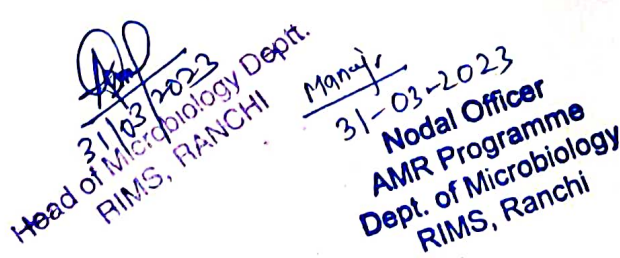 31/03/2023
Head of Microbiology Deptt.
RIMS, RANCHI
Manoj
31-03-2023
Nodal Officer
AMR Programme
Dept. of Microbiology
RIMS, Ranchi